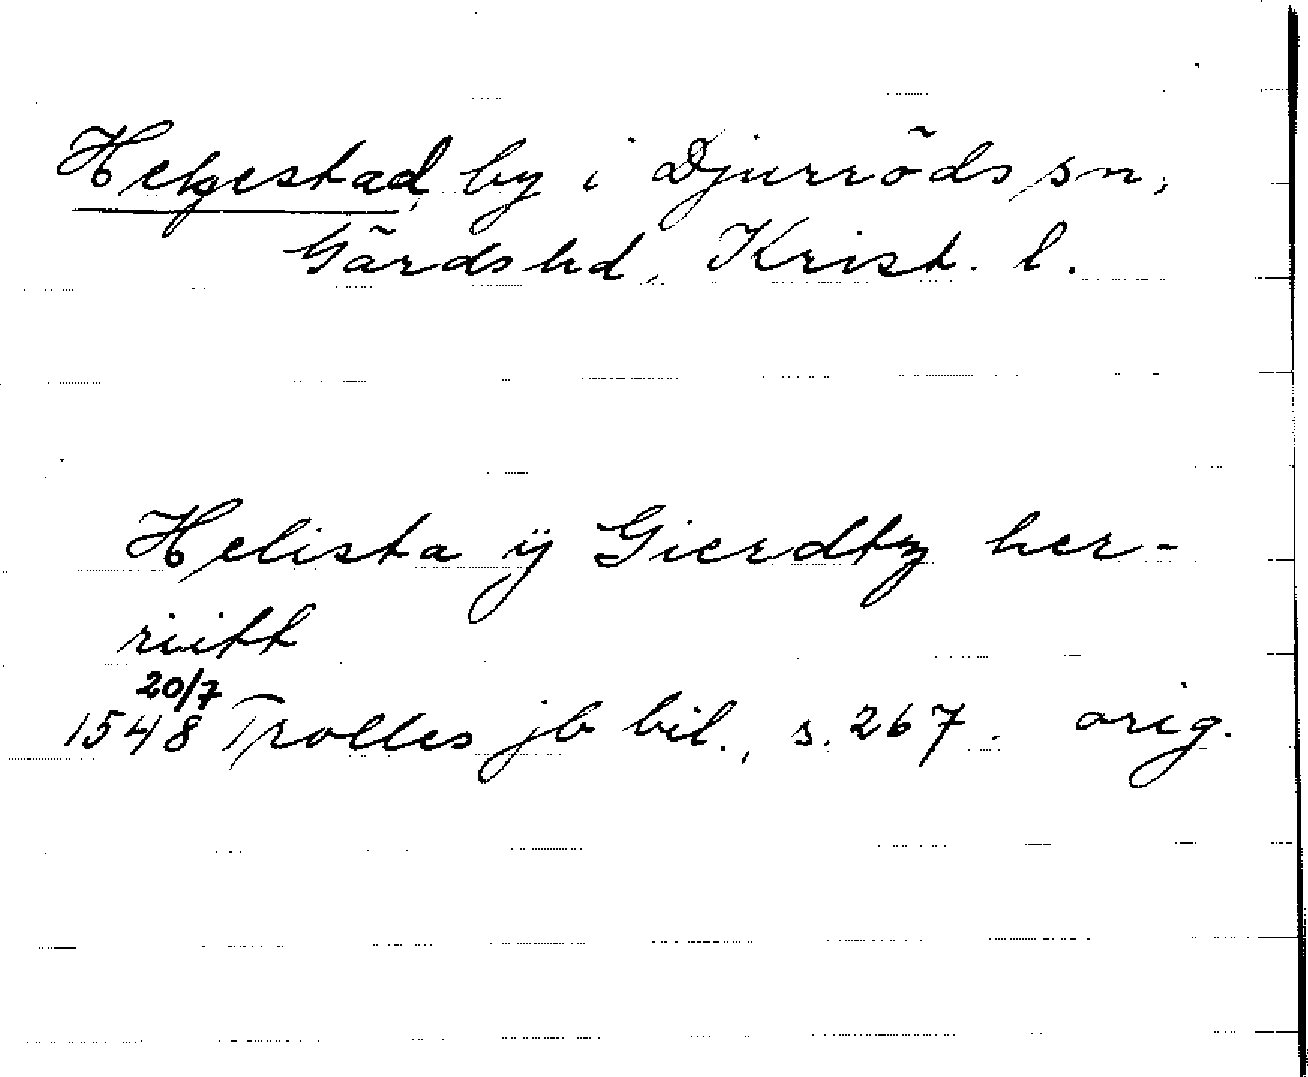 Helgestad, by i Djurröds sn,
Gärds hd, Krist. l.
Helista ÿ Gierdtz her-
riitt
20/7
1548 Trolles jb bil., s. 267. orig.